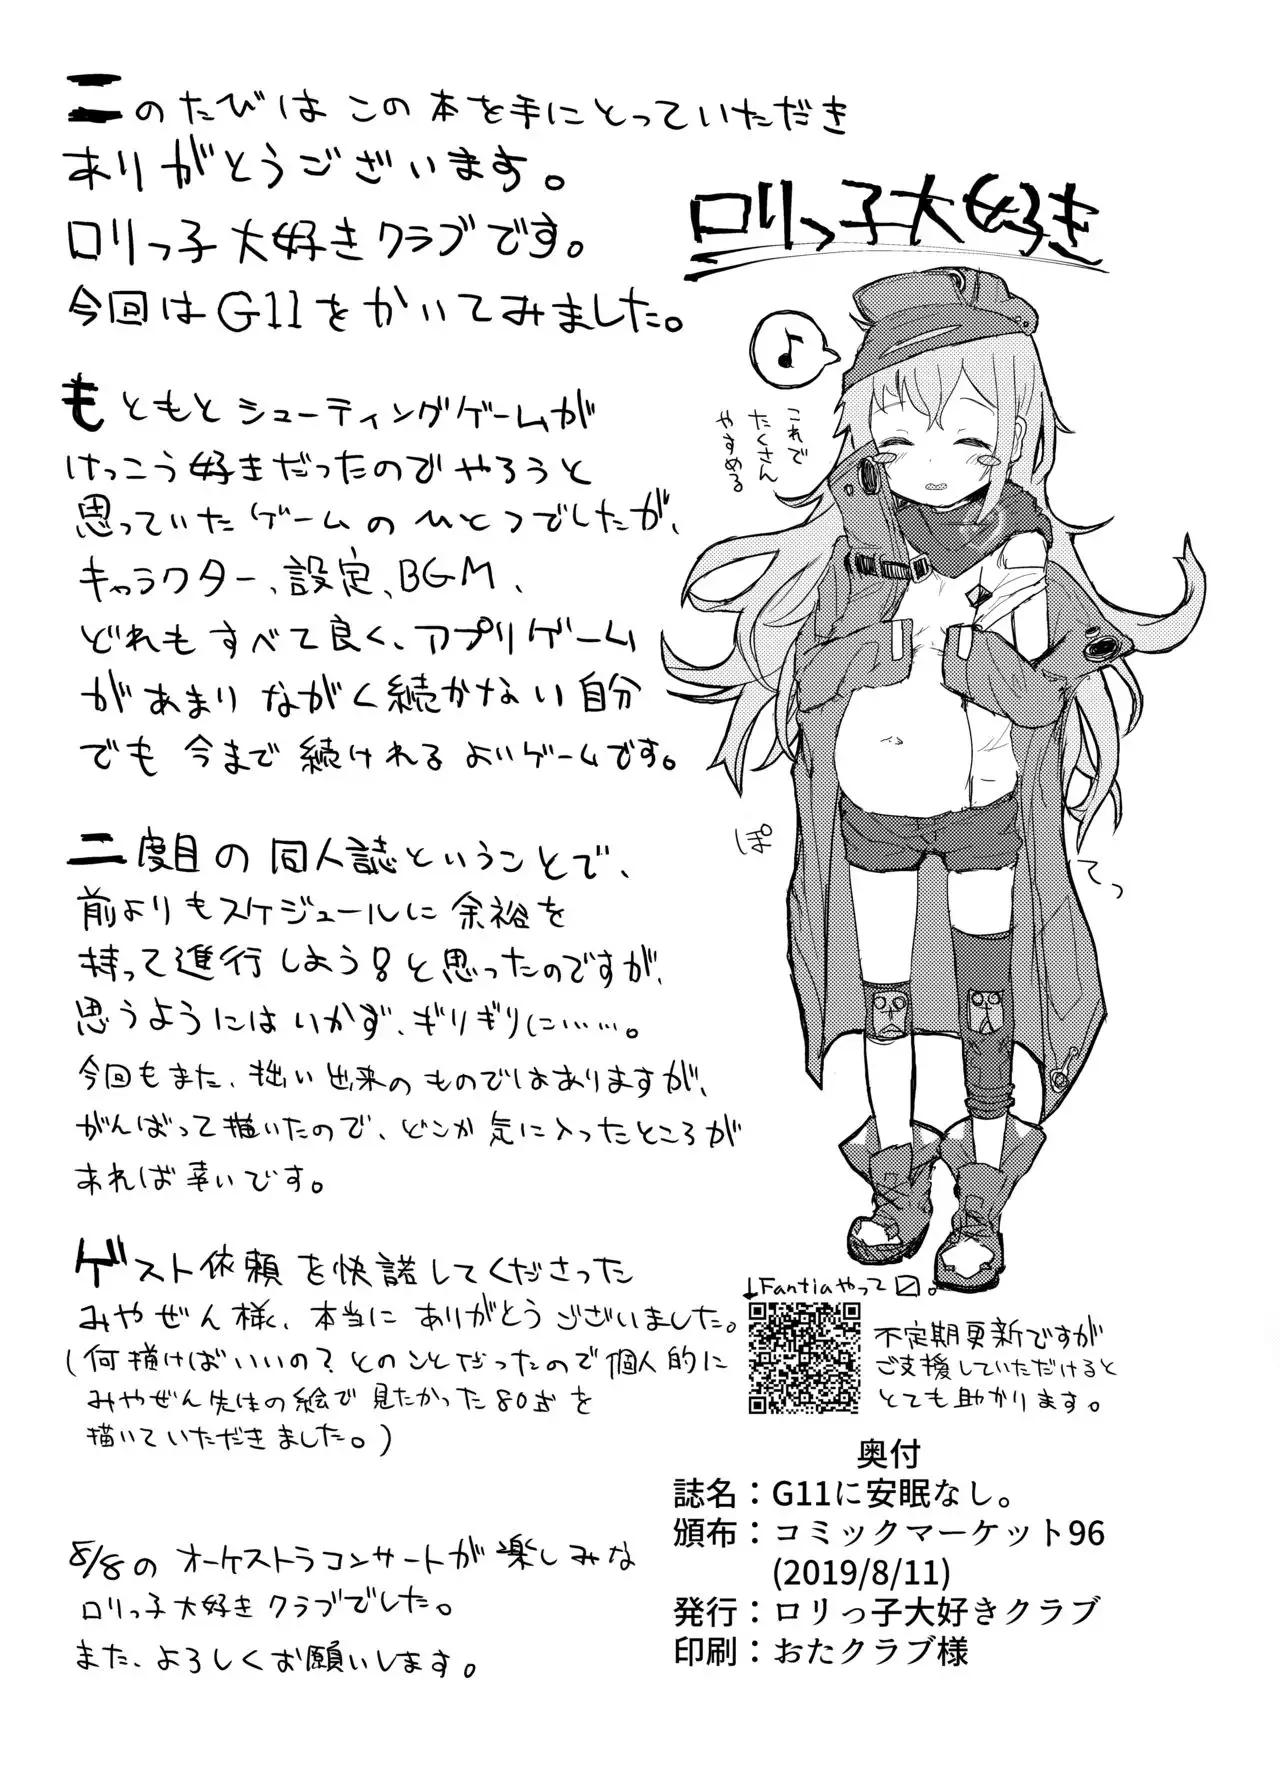 このたびは この 本を手にとっていただき
ありがとうございます。
ロリっ子 大好きクラブです。
今回は G11をかいてみました。
もともと シューティングゲームが
けっこう好きだったので やろうと
思っていた ゲームの ひとつでしたが、
キャラクター、設定、BGM、
どれも すべて良く、アプリゲーム
があまり ながく続かない自分
でも 今まで続けれる よいゲームです。
二度目の 同人誌ということで、
前よりもスケジュールに 余裕を
持って進行しよう！と思ったのですが、
思うようにはいかず、ギリギリに……。
今回もまた、拙い出来のものではありますが、
がんばって描いたので、どこか気に入ったところが
あれば幸いです。
ゲスト依頼を快諾してくださった
みやぜん様、本当に ありがとうございました。
(何描けばいいの？とのことだったので個人的に
みやぜん先生の絵で見たかった80式を
描いていただきました。)
8/8の オーケストラコンサートが楽しみな
ロリっ子大好きクラブでした。
また、よろしくお願いします。
ロリっ子大好き
♪
これで
たくさん
やすめる
ぽ
てっ
↓Fantiaやって〼。
不定期更新ですが
ご支援していただけると
とても助かります。
奥付
誌名：G11に安眠なし。
頒布：コミックマーケット96
(2019/8/11)
発行：ロリっ子大好きクラブ
印刷：おたクラブ様